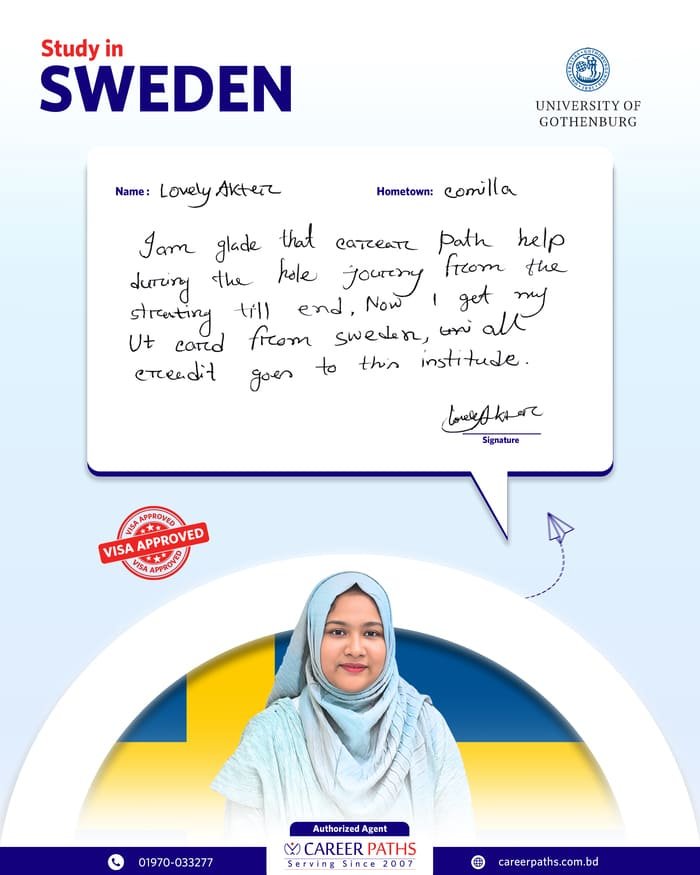 Study in
SWEDEN
UNIVERSITY OF
GOTHENBURG
Name: Lovely Akter
Hometown: Comilla
I am glade that careear path help
during the hole journy from the
streating till end, Now I get my
Ut card from sweden, all
creadit goes to this institute.
Lovely Akter
Signature
VISA APPROVED
VISA APPROVED
VISA APPROVED
Authorized Agent
CAREER PATHS
Serving Since 2007
01970-033277
careerpaths.com.bd